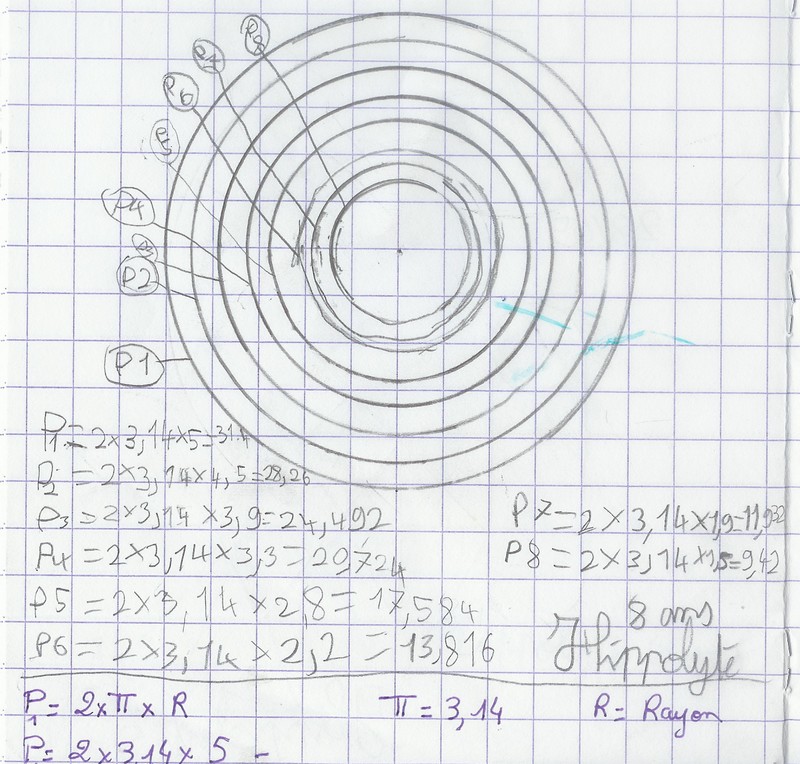 P8
P7
P6
P5
P4
P3
P2
P1
P1 = 2×3,14×5=31.4
P2 = 2×3,14×4,5=28,26
P3 = 2×3,14×3,9=24,492
P4 = 2×3,14×3,3=20,724
P5 = 2×3,14×2,8=17,584
P6 = 2×3,14×2,2=13,816
P7=2×3,14×1,9=11,932
P8=2×3,14×1,5=9,42
8 ans
Hippolyte
P1= 2×π×R π=3,14 R= Rayon
P= 2×3,14×5 =